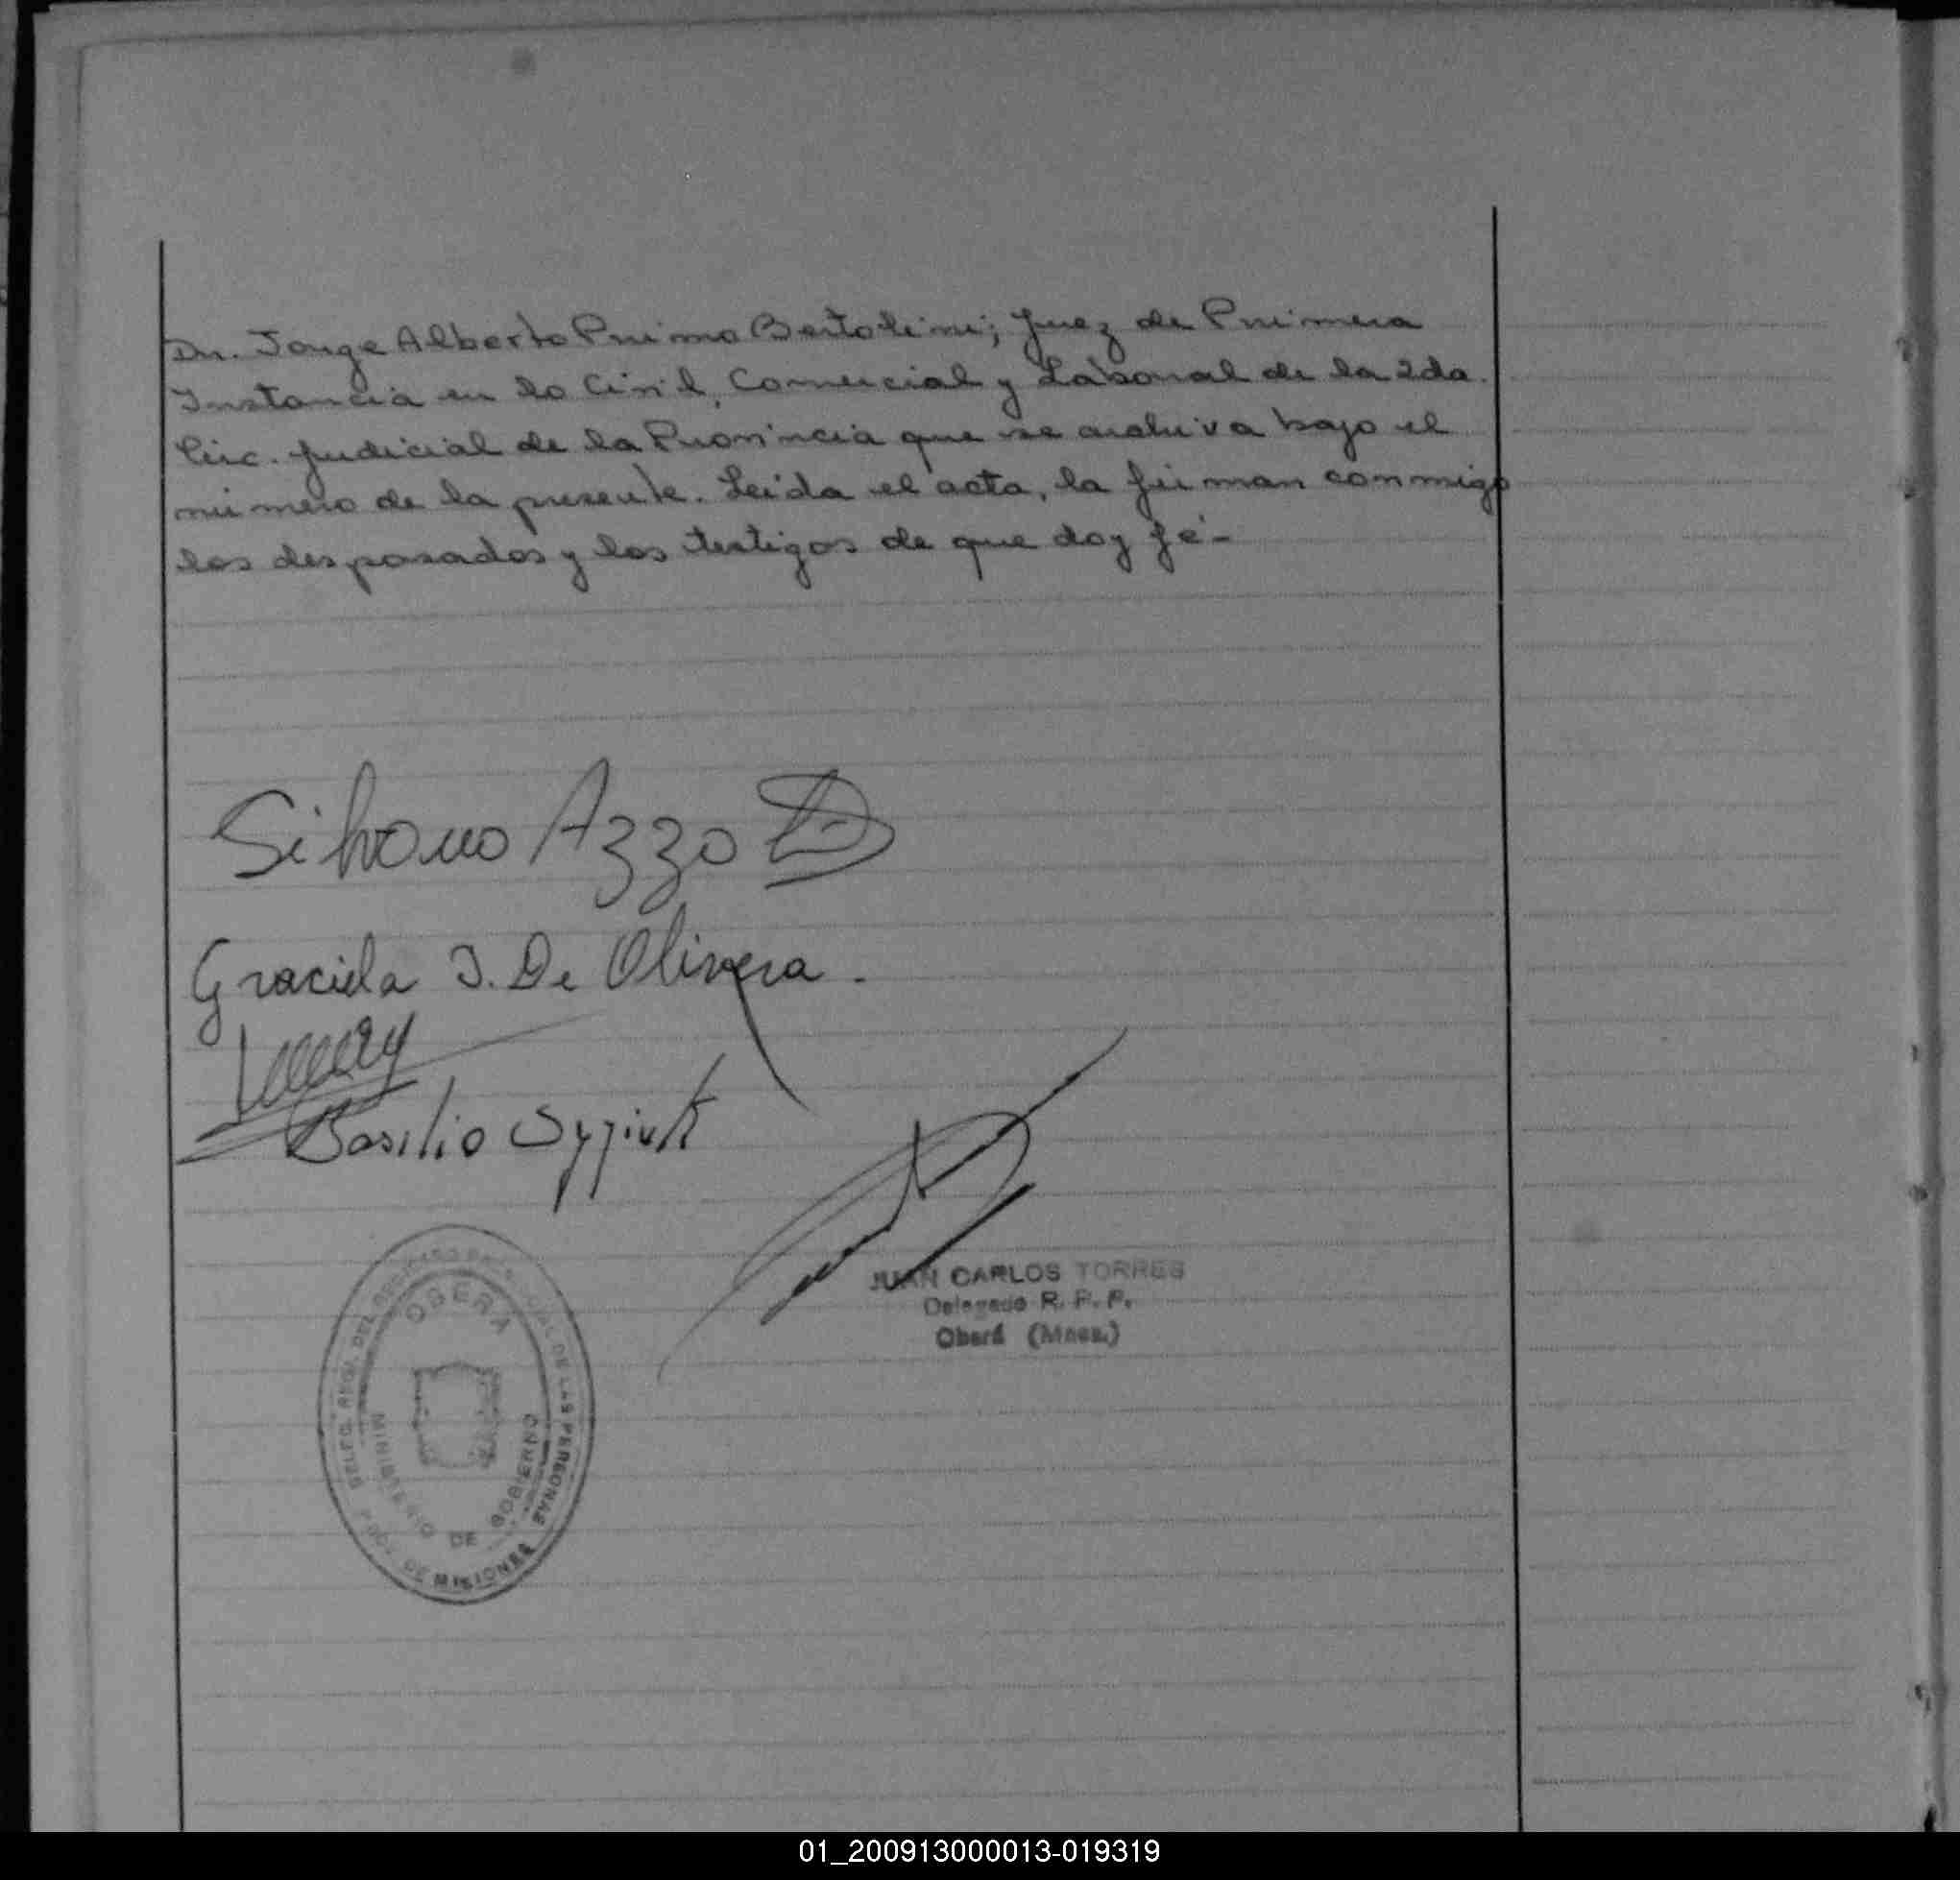 Dr. Jorge Alberto Primo Bertolini; Juez de Primera
Instancia en lo Civil, Comercial y Laboral de la 2da.
Circ. Judicial de la Provincia que se archiva bajo el
número de la presente. Leída el acta, la firman conmigo
los desposados y los testigos de que doy fé.-
Silvano Azzo
Graciela I. De Olivera.
Basilio
JUAN CARLOS TORRES
Delegado R. P. P.
Oberá (Mnes.)
OBERA
MINISTERIO DE GOBIERNO
DE LAS PERSONAS
PROV. DE MISIONES
01_200913000013-019319